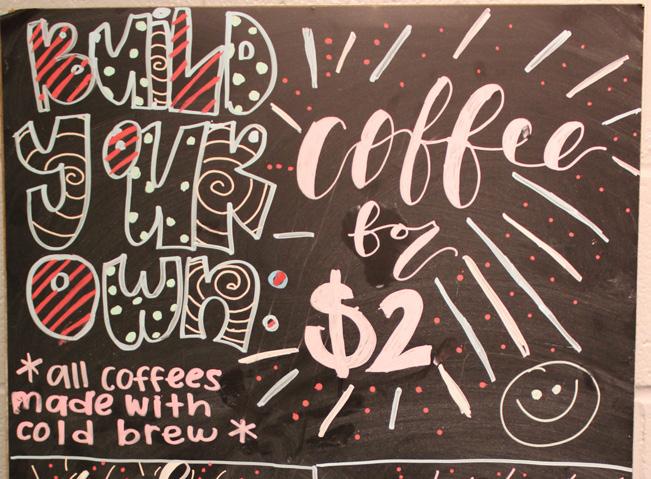 BUiLD
YOUR
OWN:
coffee
for
$2
*all coffees
made with
cold brew*